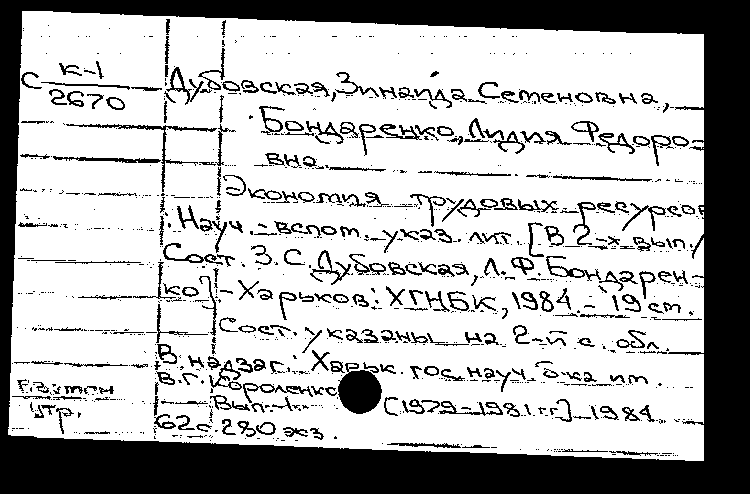 С к-1
2670
Дубовская, Зинаида Семеновна,
Бондаренко, Лидия Федоро-
вна.
Экономия трудовых ресурсов
: Науч.-вспом. указ. лит. [В 2-х вып./
Сост. З.С. Дубовская, Л.Ф. Бондарен-
ко] - Харьков: ХГНБК, 1984. - 19 см.
Сост. указаны на 2-й с. обл.
В надзаг.: Харьк. гос. науч. б-ка им.
В.Г. Короленко
Вып. 1. [1979-1981 гг.] 1984
62с. 280 экз.